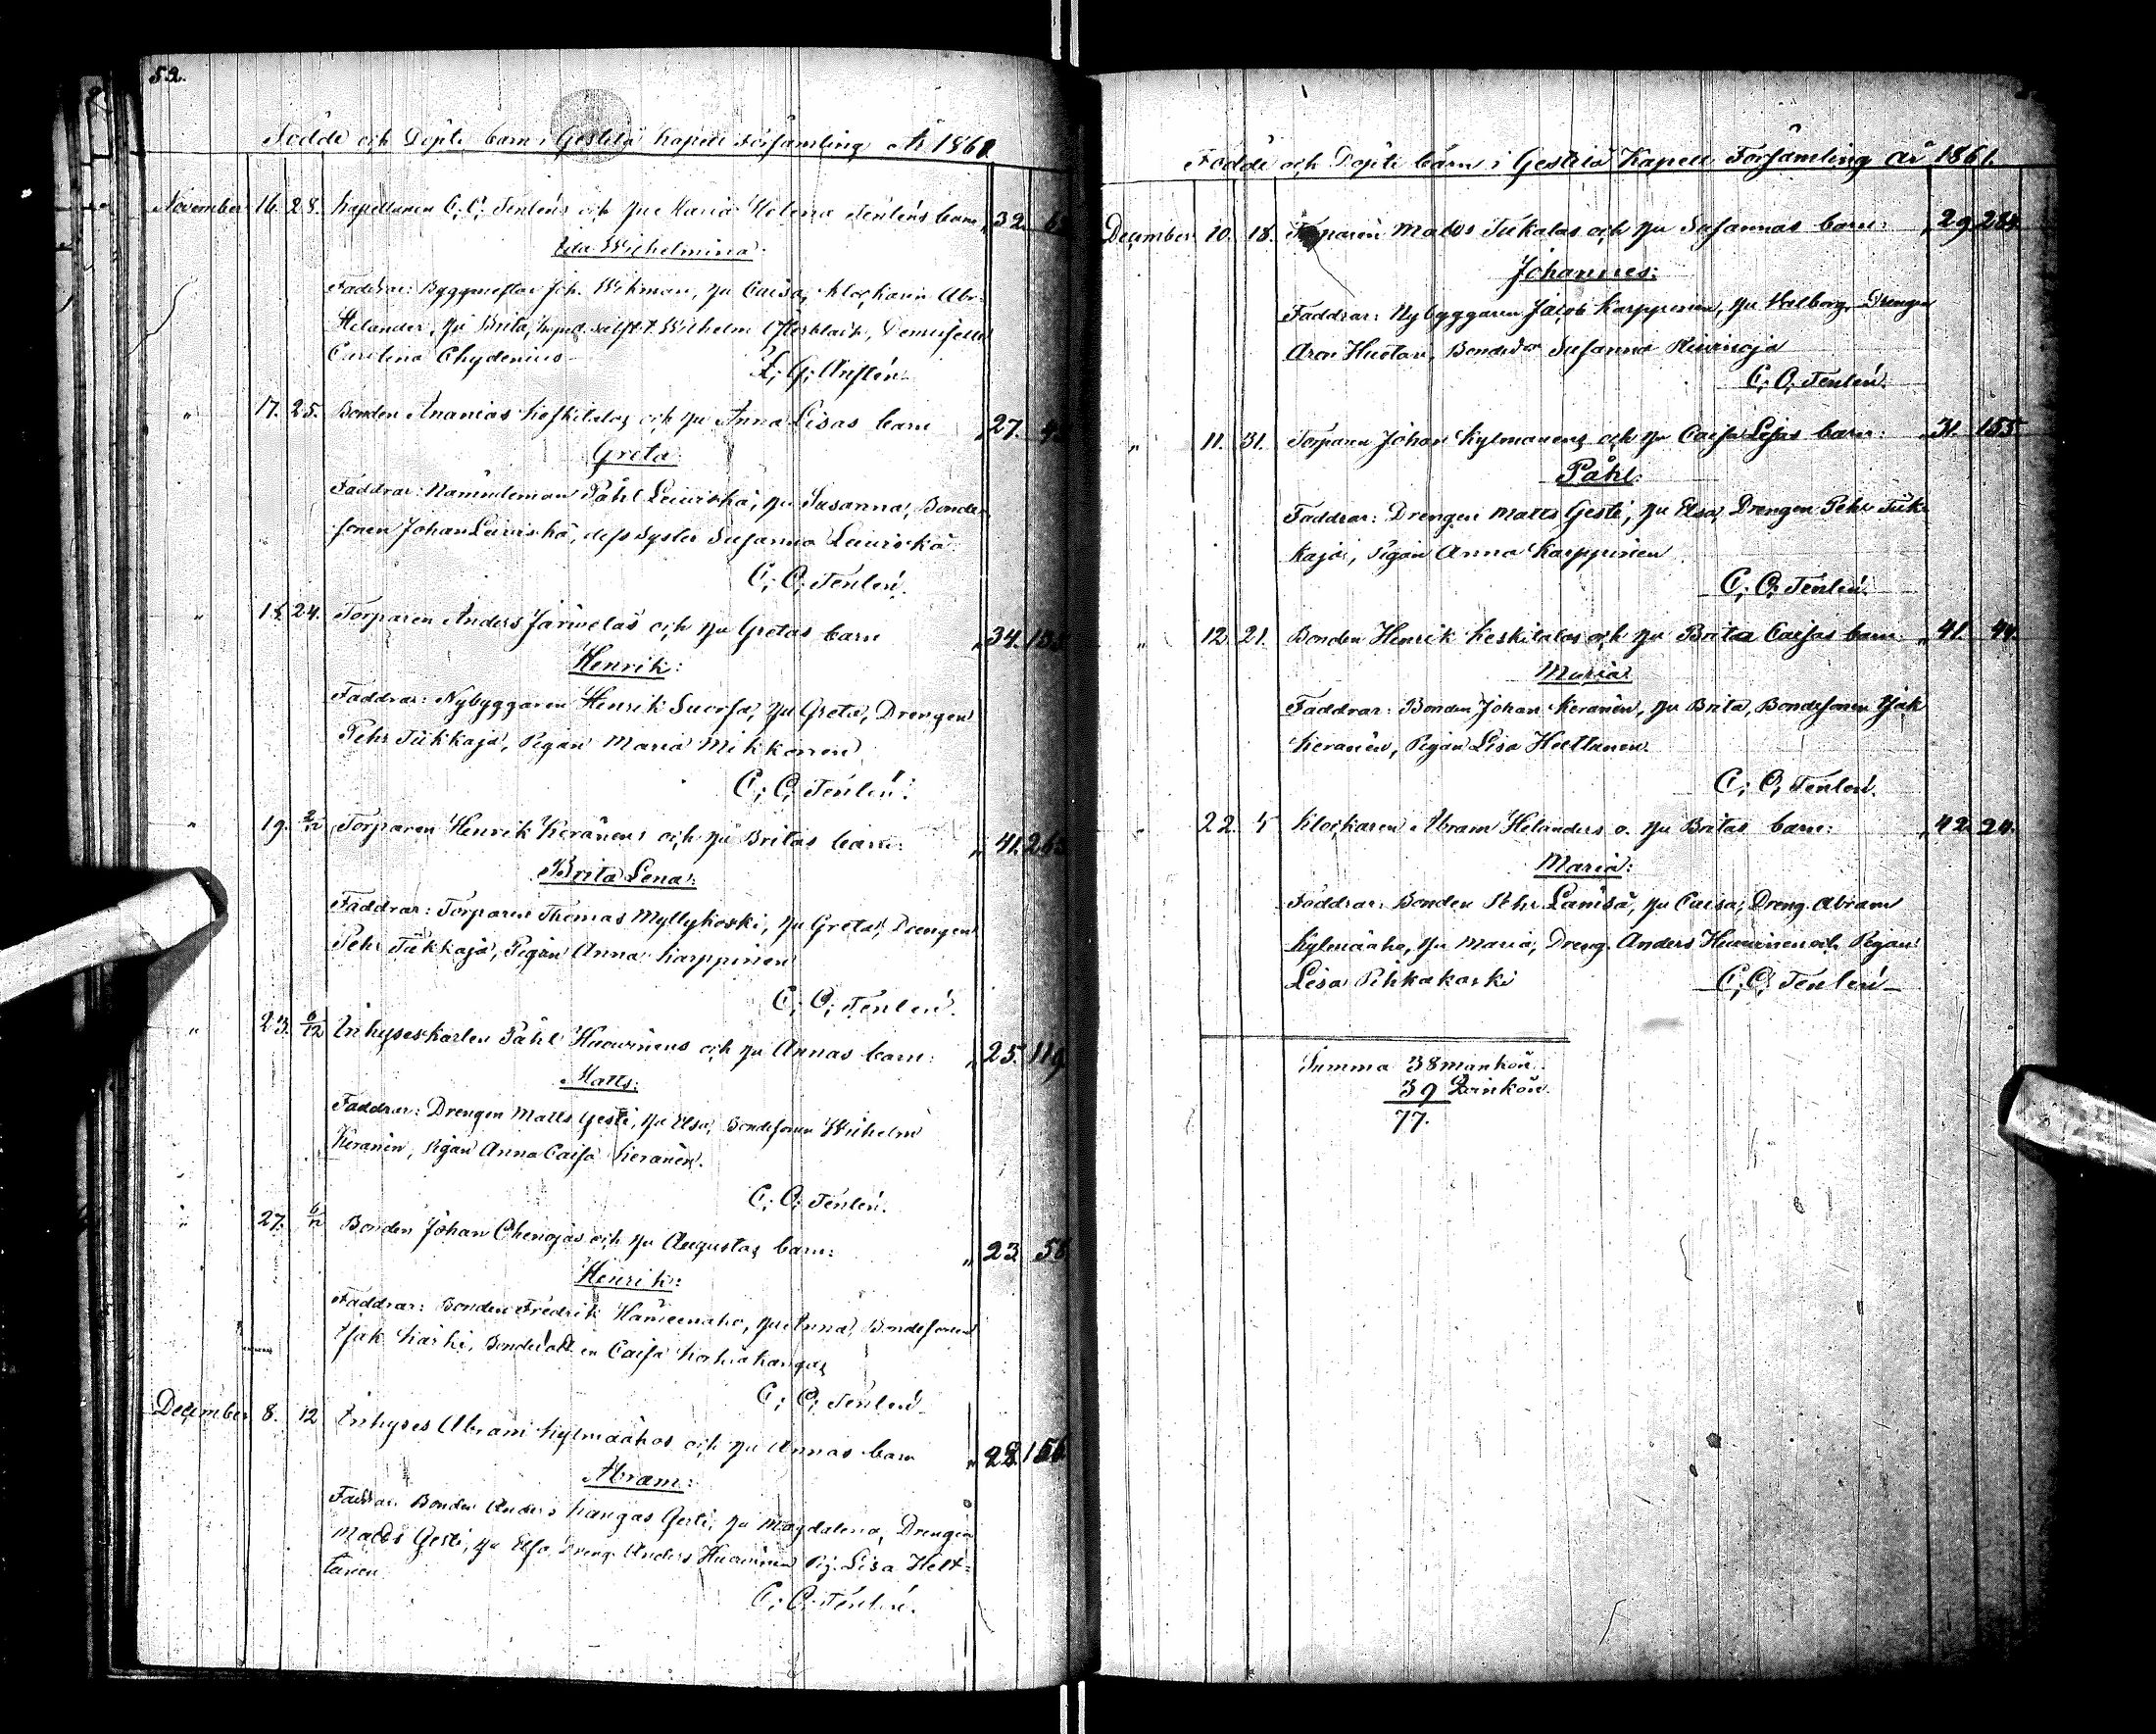 52.
Födde och Döpte barn i Gestilä Kapell Församling År 1861
November 16. 28. Kapellanen C. O. Tenléns och hu Maria Helena Tenléns barn „ 32.
Ida Wilhelmina
Faddrar: Byggmästar Joh. Wikman, hu Caisa, klockaren Abr.
Helander, hu Brita, Wilhelm Demoiselle
Carolina Chydenius
„ 17. 25. Bonden Ananias Keskitalos och hu Anna Lisas barn „ 27.
Greta
Faddrar: Nämndeman Påhl Lauriskä, hu Susanna, Bonde-
sonen Johan Lauriskä, dess Syster Susanna Lauriskä
C. O. Tenlén.
„ 18. 24. Torparen Anders Järweläs och hu Gretas barn „ 34.
Henrik:
Faddrar: Nybyggaren Henrik Suorsa, hu Greta, Drengen
Pehr Tükkaja, Pigan Maria Mikkonen
C. O. Tenlén.
„ 19. 2/12 Torparen Henrik Keränens och hu Britas barn: „ 41.
Brita Lena:
Faddrar: Torparen Thomas Myllykoski, hu Greta, Drengen
Pehr Tükkaja, Pigan Anna Karppinen
C. O. Tenlén.
„ 23. 6/12 Inhyseskarlen Påhl Huowinens och hu Annas barn: „ 25. 119.
Matts:
Faddrar: Drengen Matts Gesti, hu Elsa, Bondesonen Wilhelm
Keränen, Pigan Anna Caisa Keränen.
C. O. Tenlén.
„ 27. 6/12 Bonden Johan Ohenojas och hu Augustas barn: „ 23 58
Henrik:
Faddrar: Bonden Fredrik Hämeenaho, hu Anna, Bondesonen
Isak Kärki, Caisa
C. O. Tenlén
December 8. 12 Inhyses Abram Kylmäahos och hu Annas barn „ 28. 156
Abram:
Faddrar: Bonden Anders Kangas Gesti, hu Magdalena, Drengen
Matts Gesti, hu Elsa, Dreng. Anders Huowinen Pig. Lisa Helt=
tanen
C. O. Tenlén.
Födde och Döpte barn i Gestilä Kapell Församling År 1861.
December 10. 18. Torparen Matts Tükalas och hu Susannas barn: „ 29. 284.
Johannes:
Faddrar: Nybyggaren Jacob Karppinen, hu Walborg, Drengen
Aron Bondedr Susanna Kiwinoja
C. O. Tenlén.
„ 11. 31. Torparen Johan Kylmänens och hu Caisa Lisas barn: „ 31. 155
Påhl:
Faddrar: Drengen Matts Gesti, hu Elsa, Drengen Pehr Tük-
kaja, Pigan Anna Karppinen
C. O. Tenlén.
„ 12 21. Bonden Henrik Keskitalos och hu Brita Caisas barn „ 41. 44.
Maria
Faddrar: Bonden Johan Keränen, hu Brita, Bondesonen Isak
Keränen, Pigan Lisa Helttanen
C. O. Tenlén.
„ 22. Klockaren Abram Helanders o. hu Britas barn: „ 42. 24.
Maria:
Faddrar: Bonden Pehr Lämsä, hu Caisa, Dreng. Abram
Kylmäaho, hu Maria, Dreng. Anders Huowinen och Pigan
Lisa Pihkakoski C. O. Tenlén
Summa 38 mankön.
39 Qwinkön.
77.